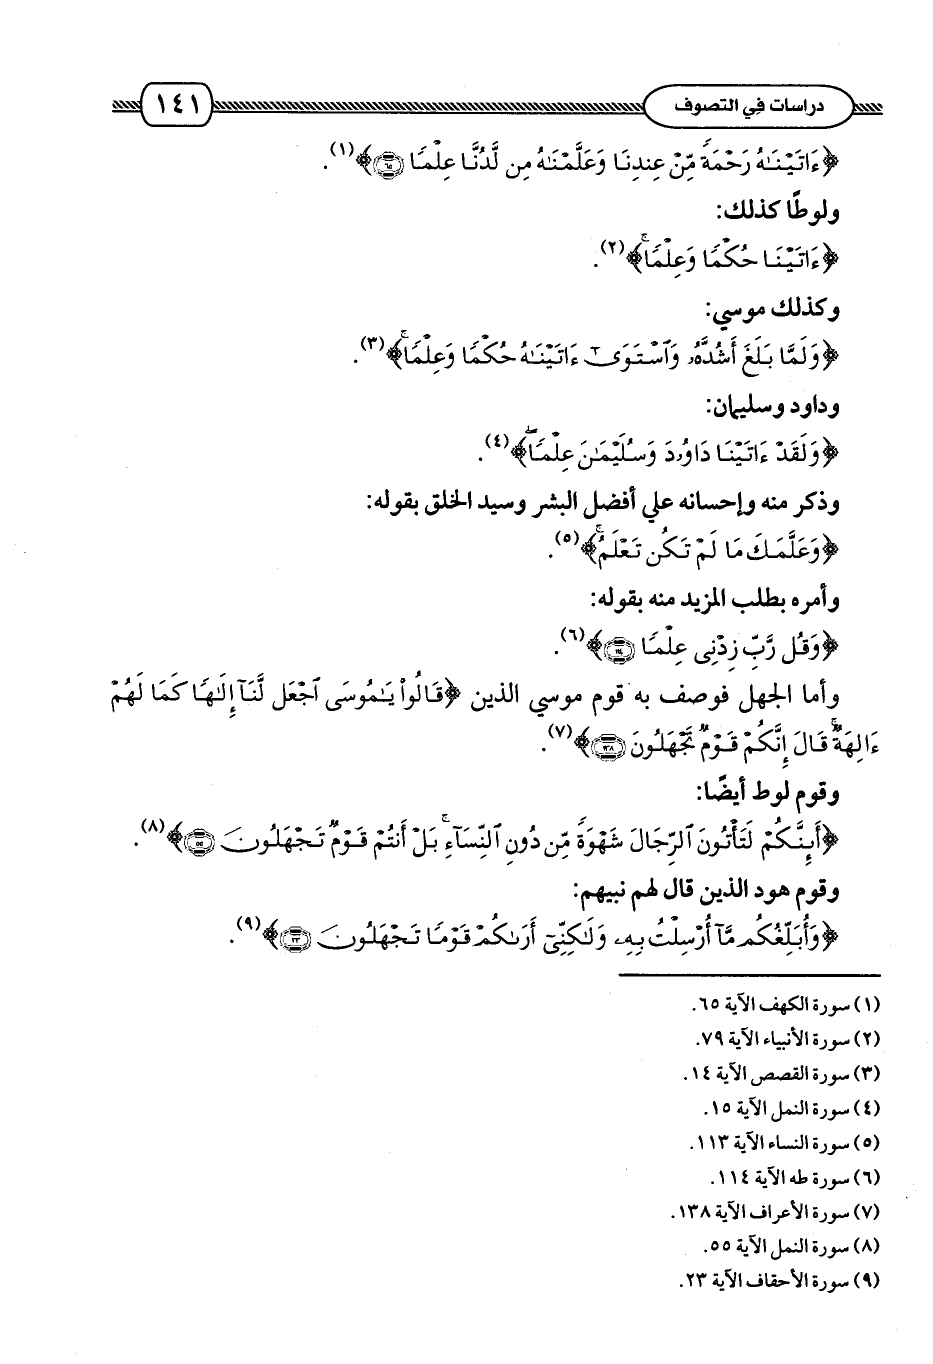 دراسات في التصوف ١٤١
﴿ءَاتَيْنَـٰهُ رَحْمَةً مِّنْ عِندِنَا وَعَلَّمْنَـٰهُ مِن لَّدُنَّا عِلْمًا ۝٦٥﴾(١).
ولوطًا كذلك:
﴿ءَاتَيْنَا حُكْمًا وَعِلْمًاۚ﴾(٢).
وكذلك موسي:
﴿وَلَمَّا بَلَغَ أَشُدَّهُۥ وَٱسْتَوَىٰٓ ءَاتَيْنَـٰهُ حُكْمًا وَعِلْمًاۚ﴾(٣).
وداود وسليمان:
﴿وَلَقَدْ ءَاتَيْنَا دَاوُۥدَ وَسُلَيْمَـٰنَ عِلْمًاۖ﴾(٤).
وذكر منه وإحسانه علي أفضل البشر وسيد الخلق بقوله:
﴿وَعَلَّمَكَ مَا لَمْ تَكُن تَعْلَمُۚ﴾(٥).
وأمره بطلب المزيد منه بقوله:
﴿وَقُل رَّبِّ زِدْنِى عِلْمًا ۝١١٤﴾(٦).
وأما الجهل فوصف به قوم موسي الذين ﴿قَالُوا۟ يَـٰمُوسَى ٱجْعَل لَّنَآ إِلَـٰهًا كَمَا لَهُمْ
ءَالِهَةٌۚ قَالَ إِنَّكُمْ قَوْمٌ تَجْهَلُونَ ۝١٣٨﴾(٧).
وقوم لوط أيضًا:
﴿أَئِنَّكُمْ لَتَأْتُونَ ٱلرِّجَالَ شَهْوَةً مِّن دُونِ ٱلنِّسَآءِۚ بَلْ أَنتُمْ قَوْمٌ تَجْهَلُونَ ۝٥٥﴾(٨).
وقوم هود الذين قال لهم نبيهم:
﴿وَأُبَلِّغُكُم مَّآ أُرْسِلْتُ بِهِۦ وَلَـٰكِنِّىٓ أَرَىٰكُمْ قَوْمًا تَجْهَلُونَ ۝٢٣﴾(٩).
(١) سورة الكهف الآية ٦٥.
(٢) سورة الأنبياء الآية ٧٩.
(٣) سورة القصص الآية ١٤.
(٤) سورة النمل الآية ١٥.
(٥) سورة النساء الآية ١١٣.
(٦) سورة طه الآية ١١٤.
(٧) سورة الأعراف الآية ١٣٨.
(٨) سورة النمل الآية ٥٥.
(٩) سورة الأحقاف الآية ٢٣.